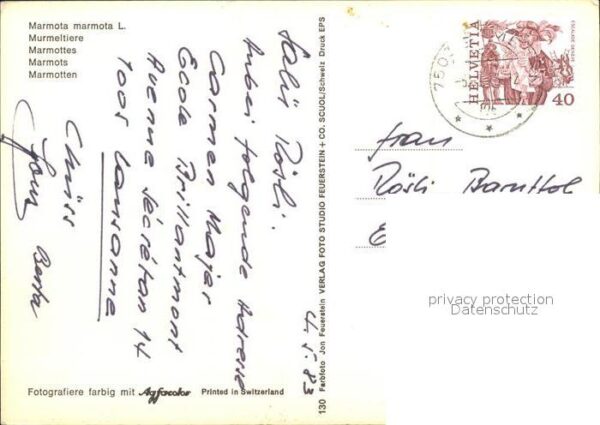 Marmota marmota L.
Murmeltiere
Marmottes
Marmots
Marmotten
Salü Rösli.
Anbei folgende Adresse
Carmen Majer
Ecole Brillantmont
Avenue Secrétan 14
1005 Lausanne
Chüss
Berta
4.5.83
130 Farbfoto Jon Feuerstein VERLAG FOTO STUDIO FEUERSTEIN + CO. SCUOL/Schweiz Druck EPS
Fotografiere farbig mit Agfacolor Printed in Switzerland
HELVETIA
40
750
Frau
Rösli
E
privacy protection
Datenschutz